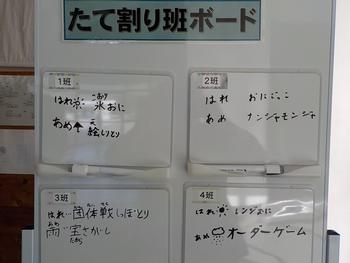 たて割り班ボード
1班
はれ 氷おに
あめ 絵しりとり
2班
はれ おにごっこ
あめ ナンジャモンジャ
3班
はれ 団体戦しっぽとり
雨 宝さがし
4班
はれ レンジおに
あめ オーダーゲーム